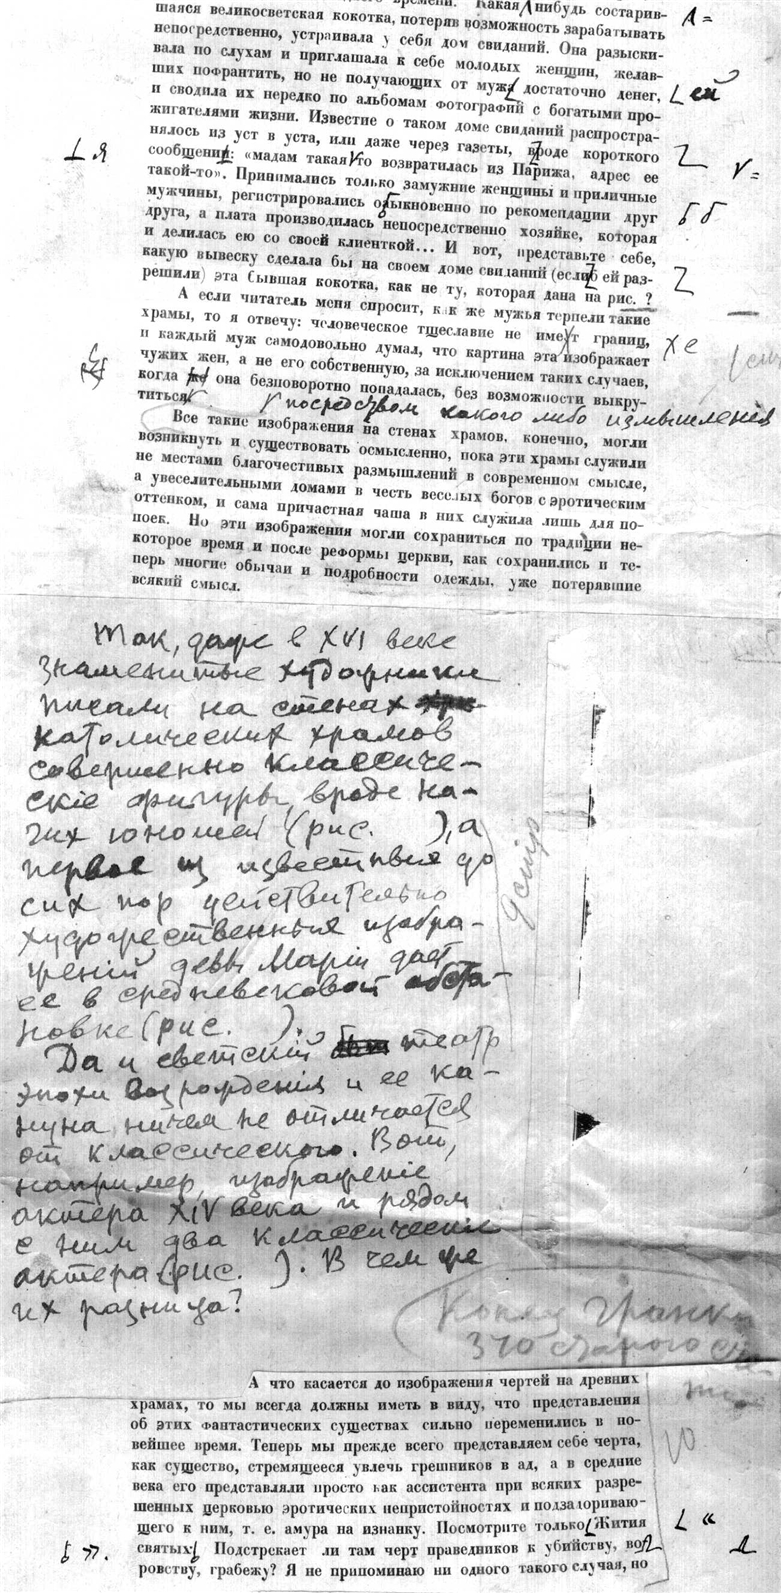 Какая нибудь состарив-
шаяся великосветская кокотка, потеряв возможность зарабатывать
непосредственно, устраивала у себя дом свиданий. Она разыски-
вала по слухам и приглашала к себе молодых женщин, желав-
ших пофрантить, но не получающих от мужа достаточно денег, ей
и сводила их нередко по альбомам фотографий с богатыми про-
жигателями жизни. Известие о таком доме свиданий распростра-
нялось из уст в уста, или даже через газеты, вроде короткого
я сообщени: «мадам такая то возвратилась из Парижа, адрес ее
такой-то». Принимались только замужние женщины и приличные
мужчины, регистрировались обыкновенно по рекомендации друг б
друга, а плата производилась непосредственно хозяйке, которая
и делилась ею со своей клиенткой... И вот, представьте себе,
какую вывеску сделала бы на своем доме свиданий (если б ей раз-
решили) эта бывшая кокотка, как не ту, которая дана на рис. ?
А если читатель меня спросит, как же мужья терпели такие
храмы, то я отвечу: человеческое тщеславие не имеет границ, е
и каждый муж самодовольно думал, что картина эта изображает
чужих жен, а не его собственную, за исключением таких случаев,
когда же она безповоротно попадалась, без возможности выкру-
титься посредством какого либо измышления
Все такие изображения на стенах храмов, конечно, могли
возникнуть и существовать осмысленно, пока эти храмы служили
не местами благочестивых размышлений в современном смысле,
а увеселительными домами в честь веселых богов с эротическим
оттенком, и сама причастная чаша в них служила лишь для по-
поек. Но эти изображения могли сохраниться по традиции не-
которое время и после реформы церкви, как сохранились и те-
перь многие обычаи и подробности одежды, уже потерявшие
всякий смысл.
Так, даже в XVI веке
знаменитые художники
писали на стенах
католических храмов
совершенно классиче-
скіе фигуры, вроде на-
гих юношей (рис. ), а
первое из известных до
сих пор действительно
художественных изобра-
жений девы Марии дает
ее в средневековой обста-
новке (рис. ).
Да и светский театр
эпохи Возрождения и ее ка-
нуна ничем не отличается
от классического. Вот,
например, изображеніе
актера XIV века и рядом
с ним два классических
актера (рис. ). В чем же
их разница?
Конец гранки
340 старого
А что касается до изображения чертей на древних
храмах, то мы всегда должны иметь в виду, что представления
об этих фантастических существах сильно переменились в но-
вейшее время. Теперь мы прежде всего представляем себе черта,
как существо, стремящееся увлечь грешников в ад, а в средние
века его представляли просто как ассистента при всяких разре-
шенных церковью эротических непристойностях и подзадориваю-
щего к ним, т. е. амура на изнанку. Посмотрите только Жития «
». святых Подстрекает ли там черт праведников к убийству, во
ровству, грабежу? Я не припоминаю ни одного такого случая, но